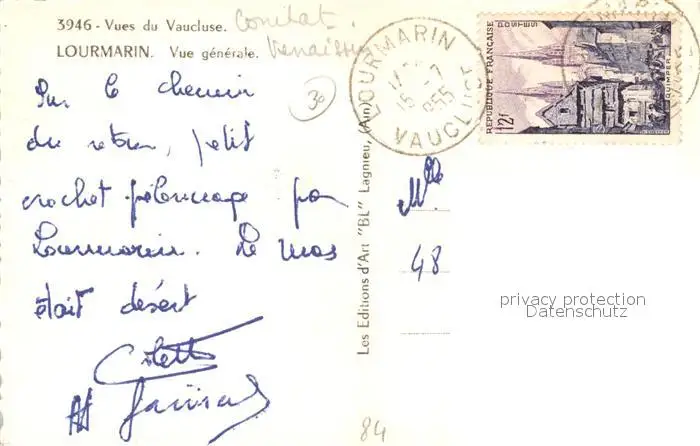 3946 - Vues du Vaucluse.
Comitat
Venaissin
LOURMARIN. Vue générale.
30
Sur le chemin
du retour, petit
crochet pélerinage par
Lourmarin. Le mas
était désert
Colette
LOURMARIN
15-7
1955
VAUCLUSE
POSTES
REPUBLIQUE FRANÇAISE
QUIMPER
12F
Les Editions d'Art "BL" Lagnieu, (Ain)
Mlle
48
privacy protection
Datenschutz
84